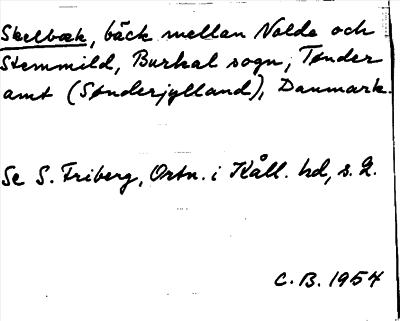 Skelbæk, bäck mellan Nolde och
Stemmild, Burkal sogn, Tønder
amt (Sønderjylland), Danmark.
Se S. Friberg, Ortn. i Kåll. hd, s.
C.B. 1954